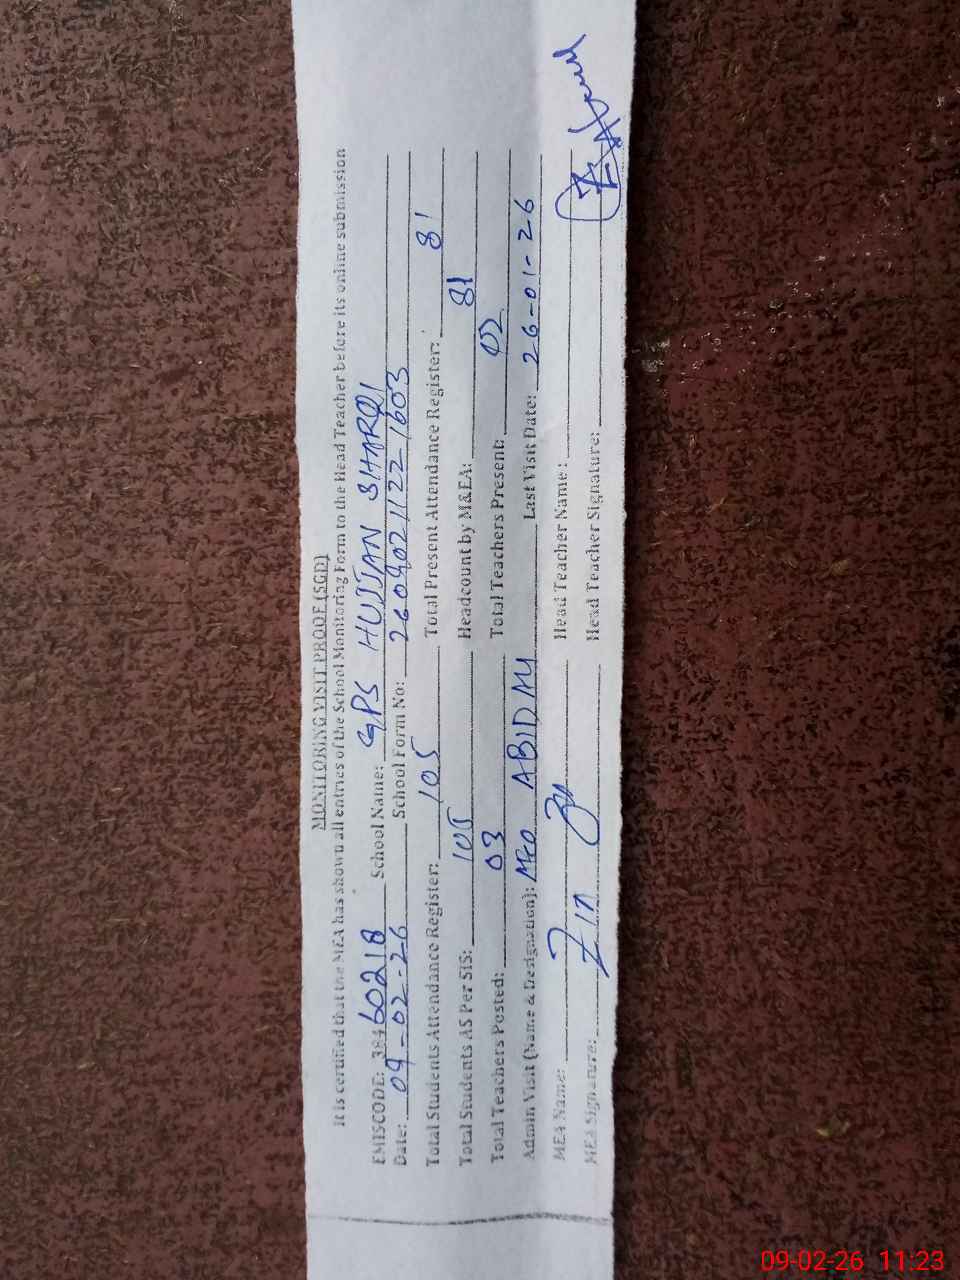 MONITORING VISIT PROOF (SGD)
It is certified that the MEA has shown all entries of the School Monitoring Form to the Head Teacher before its online submission
EMISCODE: 38460218 School Name: GPS HUSSAN SHARQI
Date: 09-02-26 School Form No: 26090211221603
Total Students Attendance Register: 105 Total Present Attendance Register: 81
Total Students AS Per SIS: 105 Headcount by M&EA: 81
Total Teachers Posted: 03 Total Teachers Present: 02
Admin Visit (Name & Designation): ABID Last Visit Date: 26-01-26
MEA Name: Head Teacher Name :
MEA Signature: Head Teacher Signature:
09-02-26 11:23